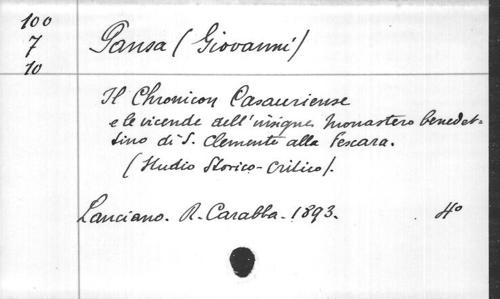 100
7
10
Pansa (Giovanni)
Il Chronicon Casauriense
e le vicende dell'insigne monastero benedet-
tino di S. Clemente alla Pescara.
(Studio Storico-Critico).
Lanciano. R. Carabba. 1893. 4°